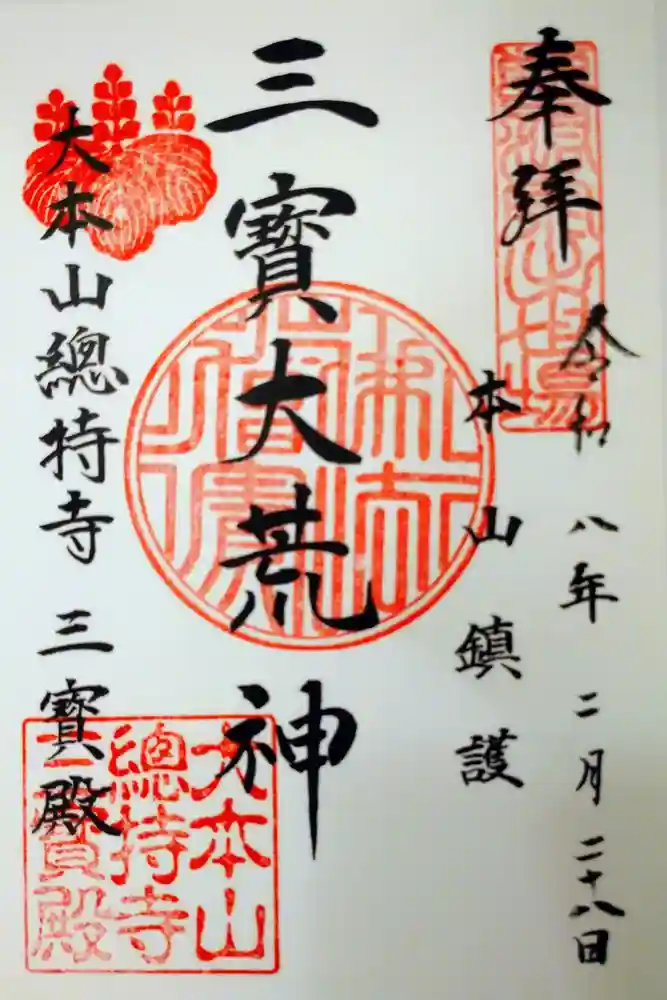 奉拝
令和八年二月二十八日
本山鎮護
三寶大荒神
大本山總持寺 三寶殿
大本山
總持寺
三寶殿